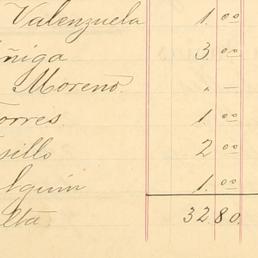 Valenzuela 1.00
ñiga 3.00
Moreno. . —
orres 1.00
sillo 2.00
lguin 1.00
elta 32 80.